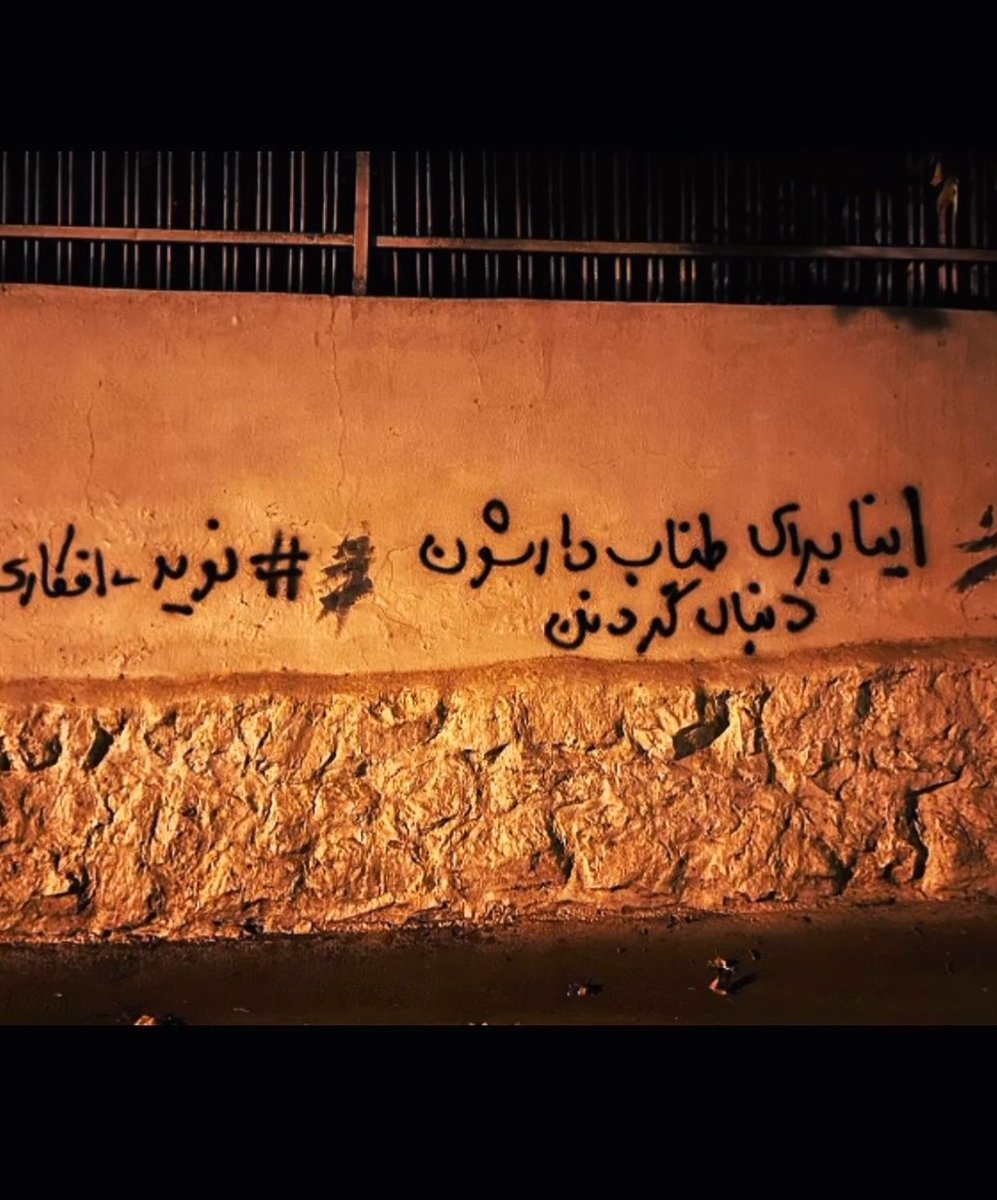 اینا برای طناب دارشون
دنبال گردنن
#نوید_افکاری